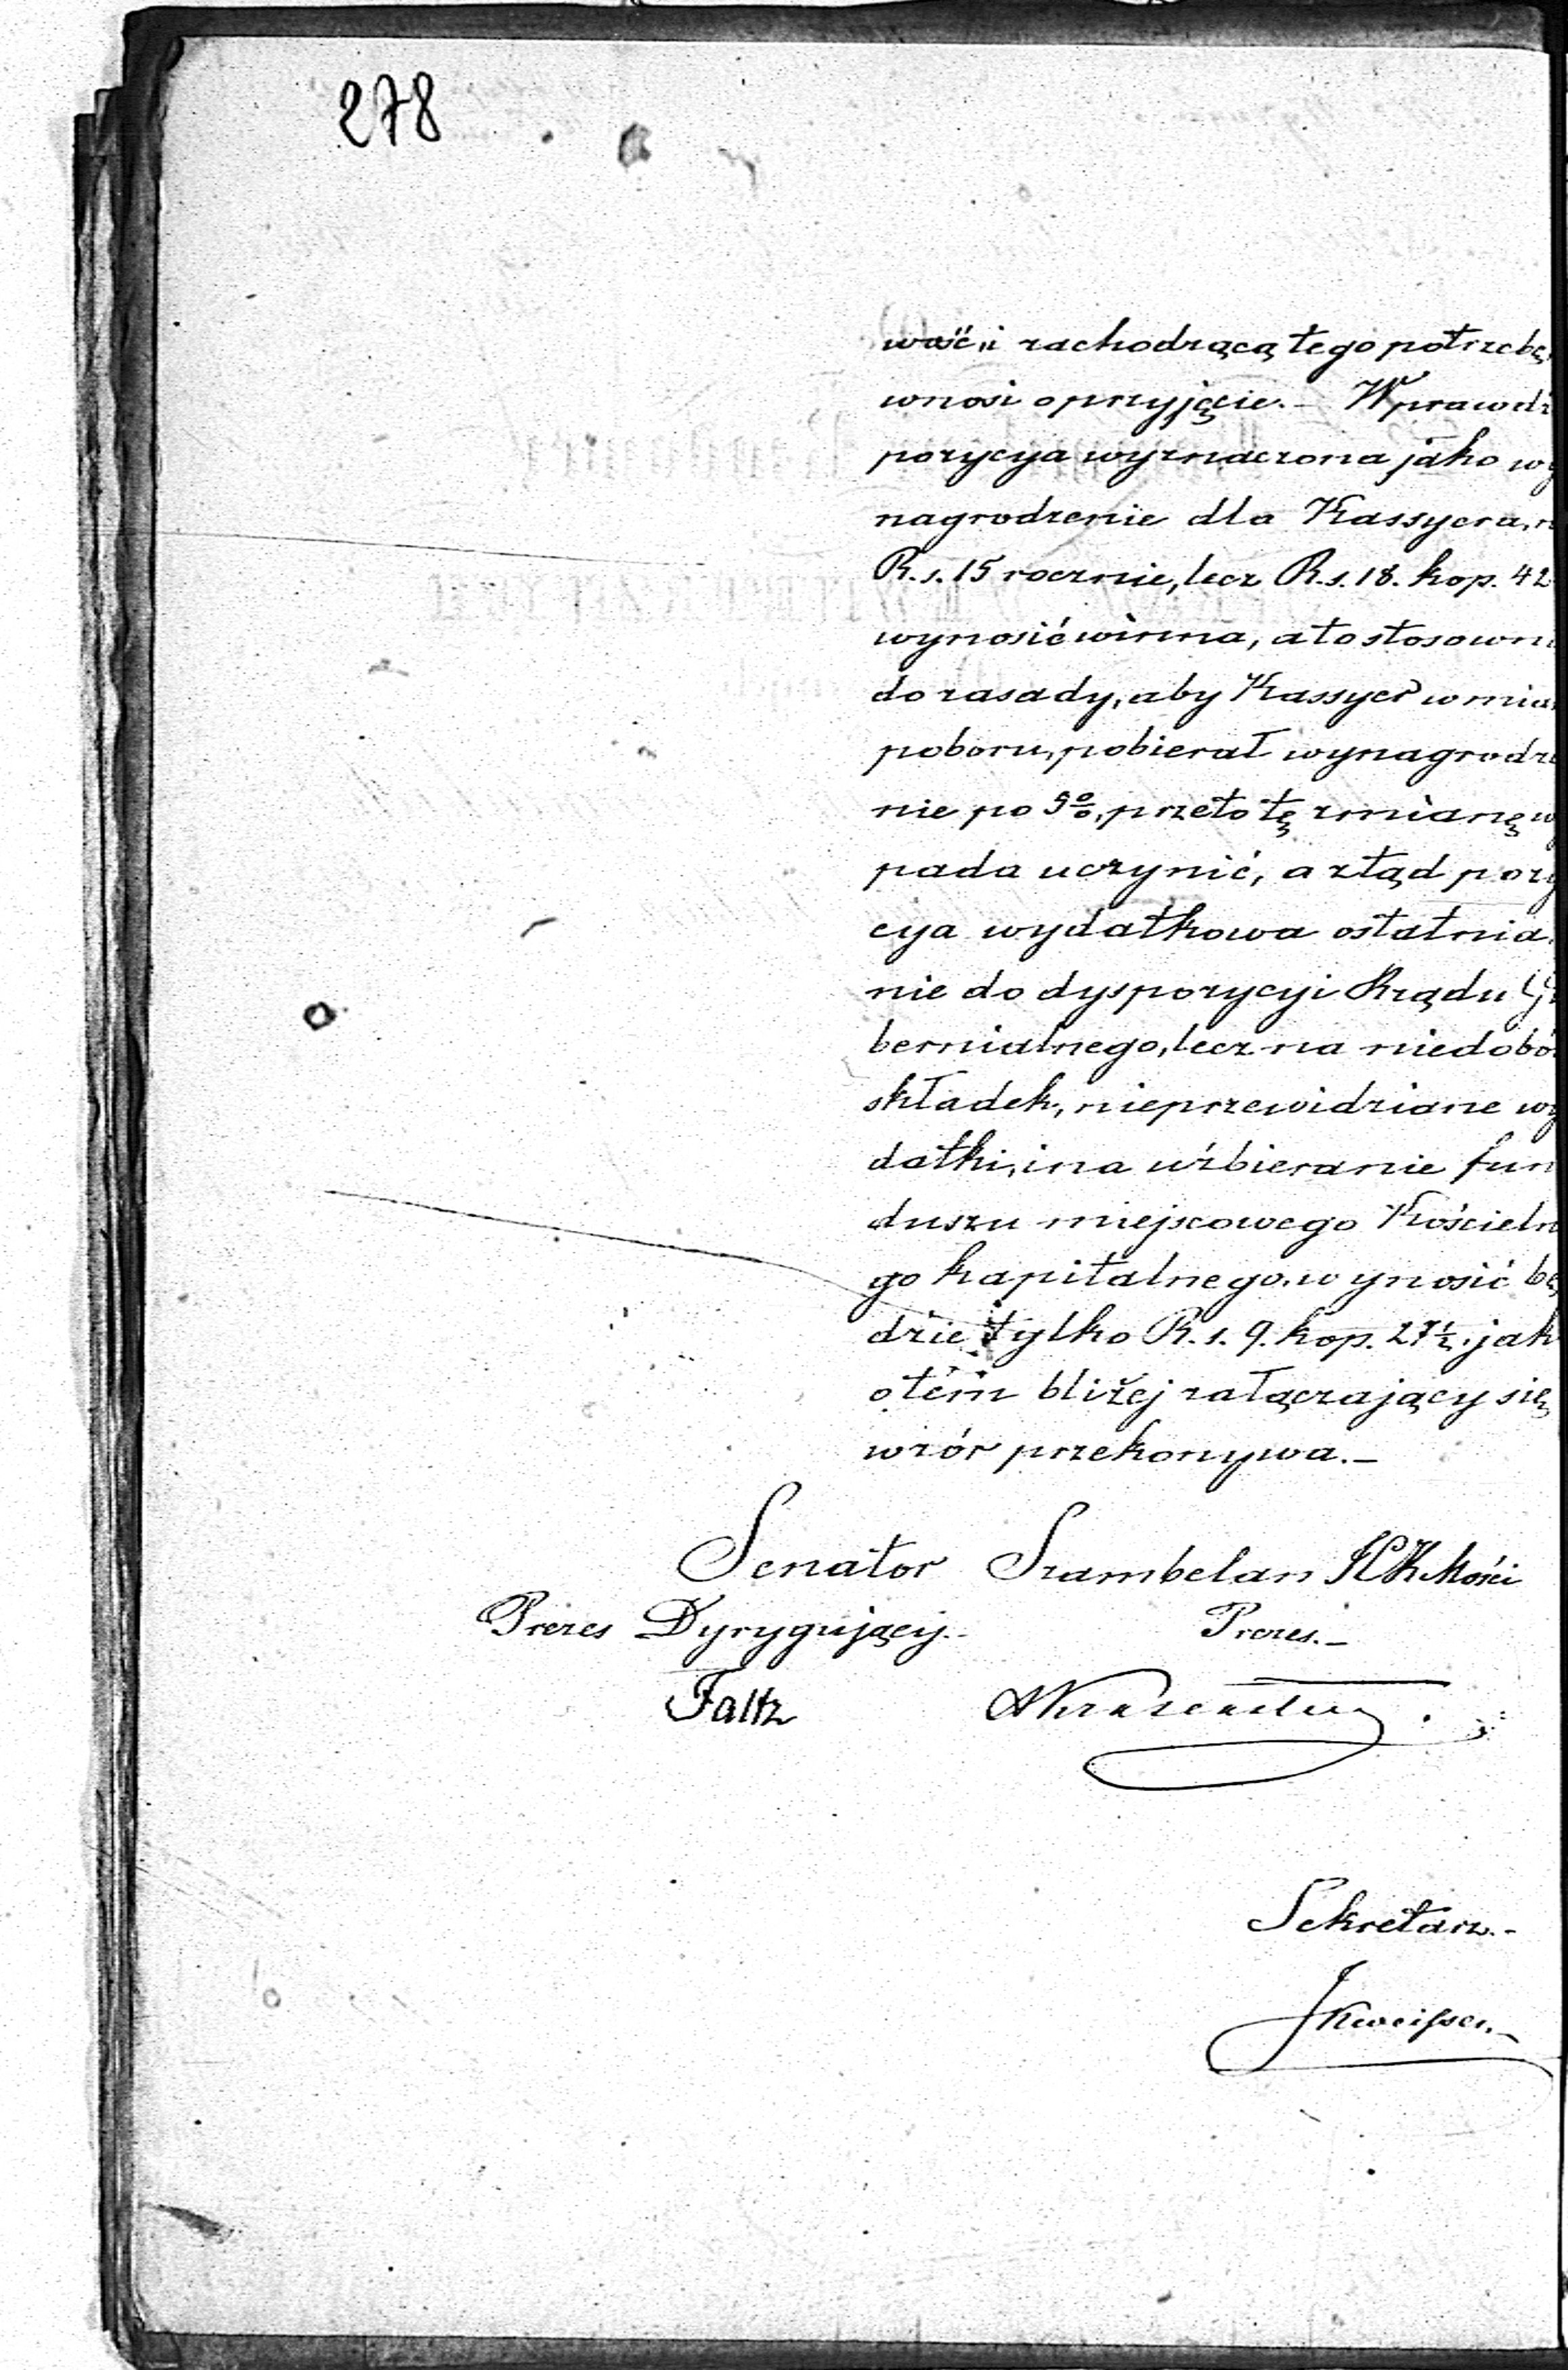 278
wość, i zachodzącą tego potrzebę,
wnosi o przyjęcie. – Wprawdz
pozycya wyznaczona jako wy
nagrodzenie dla Kassyera, n
R. s. 15 rocznie, lecz R. s. 18. kop. 42
wynosić winna, a to stosown
do zasady, aby Kassyer w mia
poboru, pobierał wynagrodze
nie po 5%, przeto tę zmianę w
pada uczynić, a ztąd pozy
cya wydatkowa ostatnia,
nie do dyspozycyi Rządu G
bernialnego, lecz na niedobó
składek, nieprzewidziane wy
datki, i na uzbieranie fun
duszu miejscowego Kościeln
go kapitalnego, wynosić bę
dzie tylko R. s. 9. kop. 27½. jak
o tém bliżej załączający się
wzór przekonywa. –
Senator Szambelan JCKMości
Prezes Dyrygujący. – Prezes. –
Faltz
Sekretarz. –